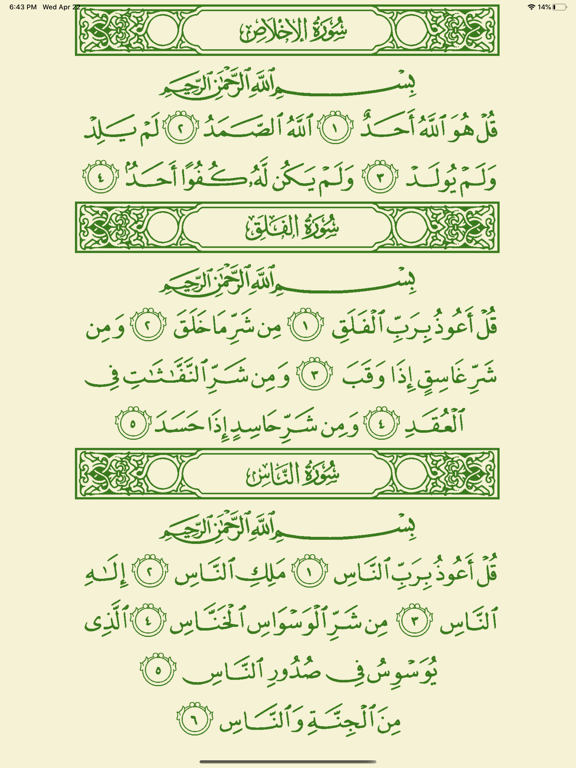 6:43 PM Wed Apr 22 14%
سُورَةُ الإِخْلَاصِ
بِسْمِ ٱللَّهِ ٱلرَّحْمَٰنِ ٱلرَّحِيمِ
قُلْ هُوَ ٱللَّهُ أَحَدٌ ١ ٱللَّهُ ٱلصَّمَدُ ٢ لَمْ يَلِدْ
وَلَمْ يُولَدْ ٣ وَلَمْ يَكُن لَّهُۥ كُفُوًا أَحَدٌۢ ٤
سُورَةُ الفَلَقِ
بِسْمِ ٱللَّهِ ٱلرَّحْمَٰنِ ٱلرَّحِيمِ
قُلْ أَعُوذُ بِرَبِّ ٱلْفَلَقِ ١ مِن شَرِّ مَا خَلَقَ ٢ وَمِن
شَرِّ غَاسِقٍ إِذَا وَقَبَ ٣ وَمِن شَرِّ ٱلنَّفَّٰثَٰتِ فِى
ٱلْعُقَدِ ٤ وَمِن شَرِّ حَاسِدٍ إِذَا حَسَدَ ٥
سُورَةُ النَّاسِ
بِسْمِ ٱللَّهِ ٱلرَّحْمَٰنِ ٱلرَّحِيمِ
قُلْ أَعُوذُ بِرَبِّ ٱلنَّاسِ ١ مَلِكِ ٱلنَّاسِ ٢ إِلَٰهِ
ٱلنَّاسِ ٣ مِن شَرِّ ٱلْوَسْوَاسِ ٱلْخَنَّاسِ ٤ ٱلَّذِى
يُوَسْوِسُ فِى صُدُورِ ٱلنَّاسِ ٥
مِنَ ٱلْجِنَّةِ وَٱلنَّاسِ ٦